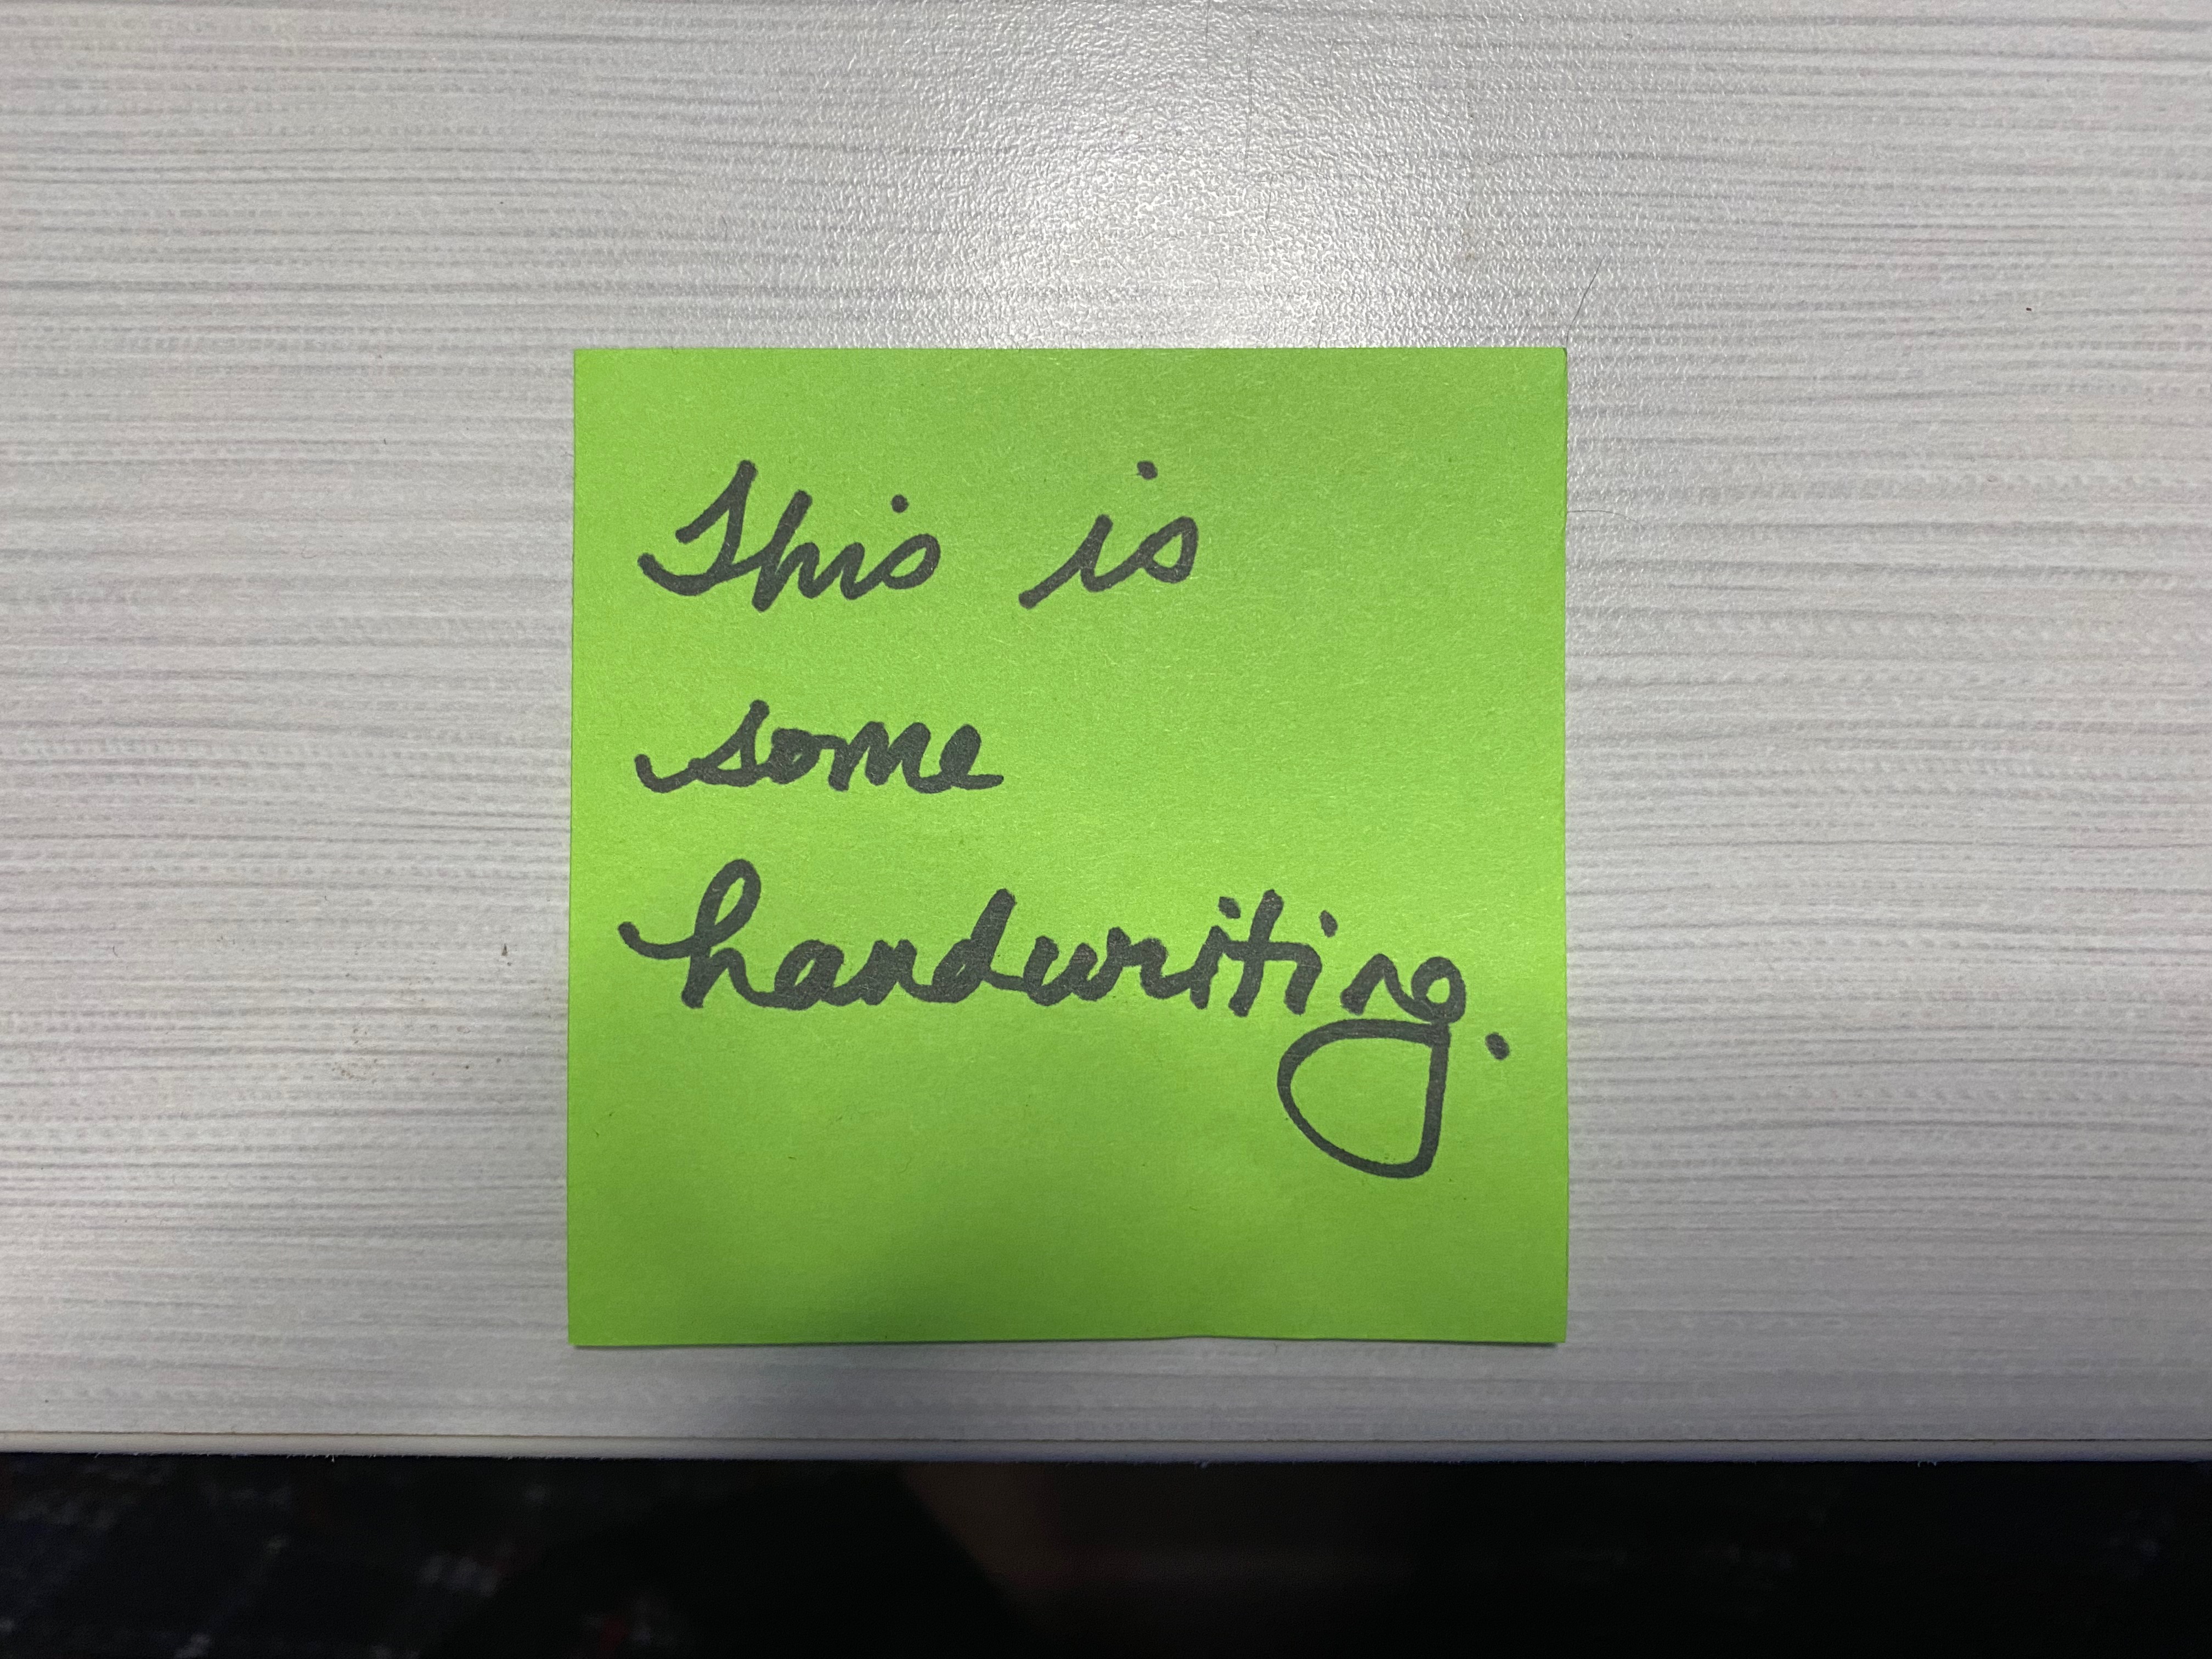 This is
some
handwriting.